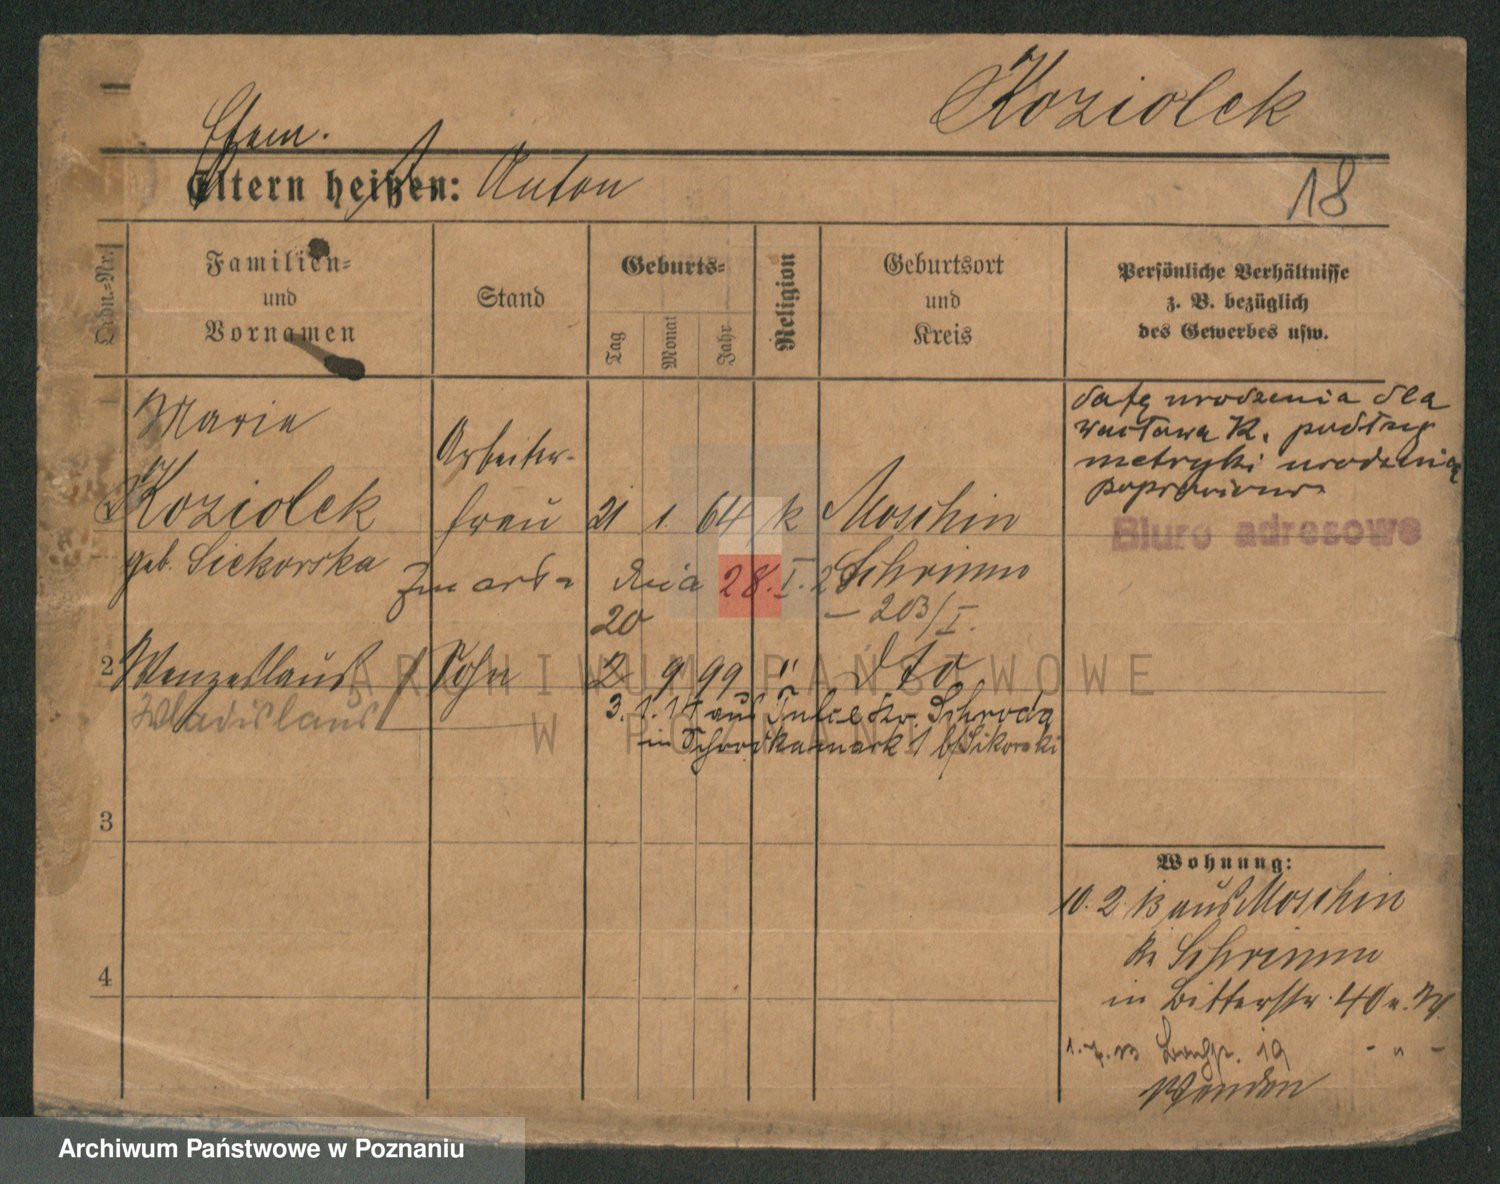 Koziolek
Ehem.
Eltern heißen: Anton
18
Ordn.-Nr.
Familien-
und
Vornamen
Stand
Geburts-
Tag
Monat
Jahr
Religion
Geburtsort
und
Kreis
Persönliche Verhältnisse
z. B. bezüglich
des Gewerbes usw.
Maria
Koziolek
geb. Siekorska
Arbeiter-
frau
21 1. 64 k Moschin
Schrimm
Zmarła dnia 28. I. 20
20 – 203/I.
datę urodzenia dla
Wacława K. podług
metryki urodzenia
poprawiono
Biuro adresowe
2 Wenzeslaus Sohn 2 9 99 " dto
Wladislaus
3. 1. 14 aus Kr. Schroda
in Schrodkamark 1 b/Sikorski
ARCHIWUM PAŃSTWOWE
W POZNANIU
3
4
Wohnung:
10. 2. 13 aus Moschin
Kr. Schrimm
in Bitterstr. 40 n. W.
1. 7. 13 19 - " -
Archiwum Państwowe w Poznaniu